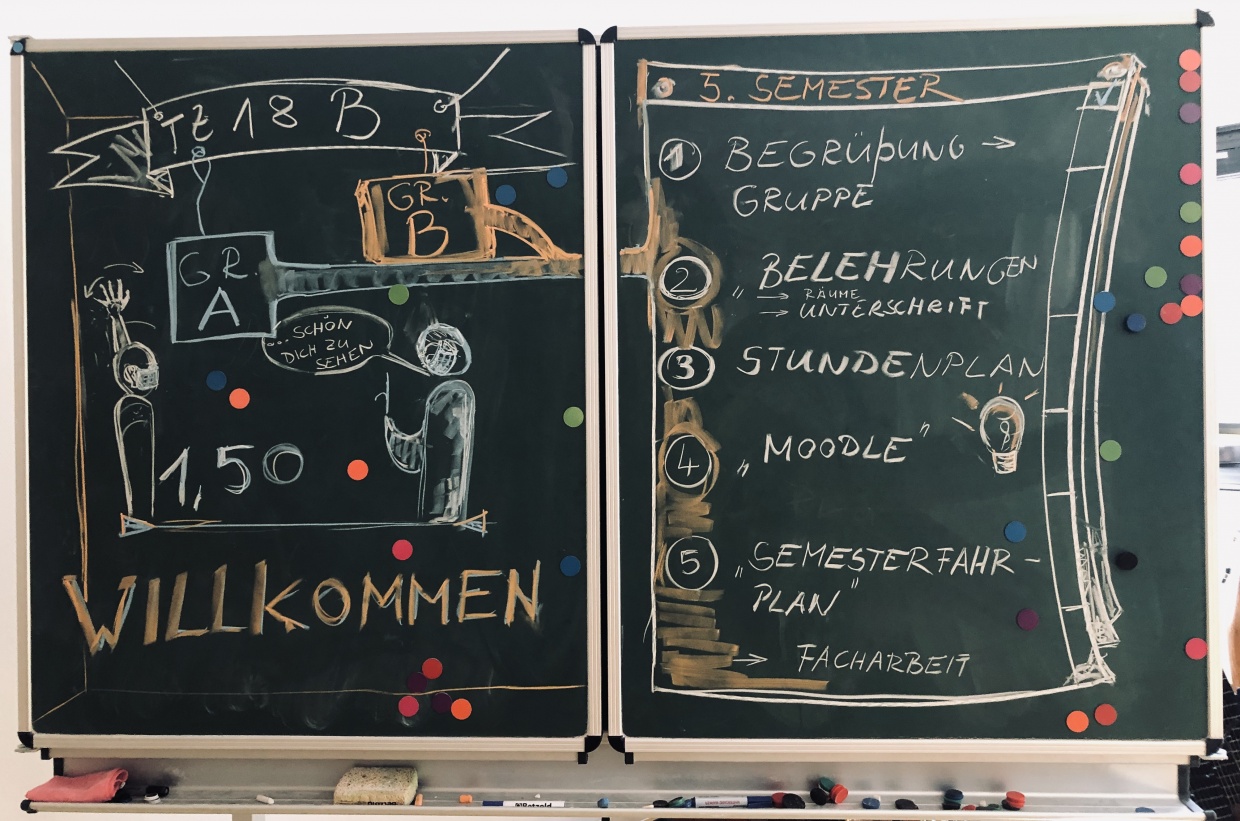 TZ 18 B
GR. A
GR. B
...SCHÖN
DICH ZU
SEHEN
1,50
WILLKOMMEN
5. SEMESTER
1 BEGRÜßUNG →
GRUPPE
2 „BELEHRUNGEN
→ RÄUME
→ UNTERSCHRIFT
3 STUNDENPLAN
4 „MOODLE“
5 „SEMESTERFAHR-
PLAN“
→ FACHARBEIT
Betzold